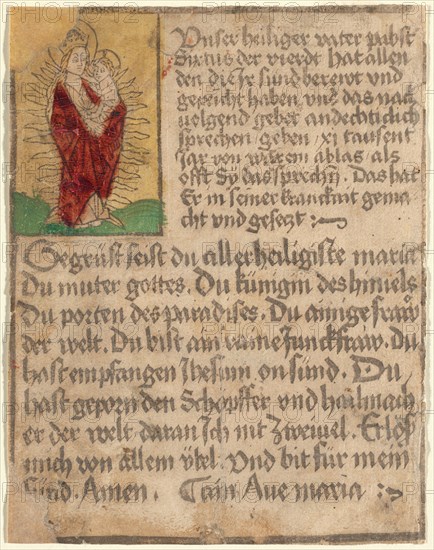 Unser heiliger vater pabst
Sixtus der vierdt hat allen
den die jr sünd berewt und
gepeicht haben, und das nach
uolgend gebet andechticlich
sprechen, geben, xi tausent
Jar von warem ablas als
offt Sy das sprechn. Das hat
Er in seiner kranckait gema
cht und gesetzt :~
Gegrüst seist du aller heiligiste maria
Du muter gottes. Du künigin des himels
Du porten des paradises. Du ainige fraw
der welt. Du bist ain raine Junckfraw. Du
hast empfangen Jhesum on sünd. Du
hast geporn den Schöpffer und hailmach
er der welt daran Ich nit Zweiuel. Erlös
mich von Allem übel. Und bit für mein
Sünd. Amen. Ain Aue maria :~